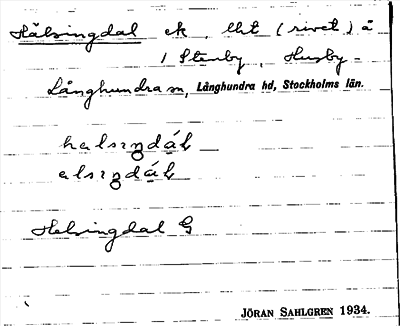 Hälsingdal ek, lht (rivet) å
/ Stenby, Husby-
Långhundra sn, Långhundra hd, Stockholms län.
halsıŋdáɫ
alsıŋdáɫ
Helsingdal G
JÖRAN SAHLGREN 1934.